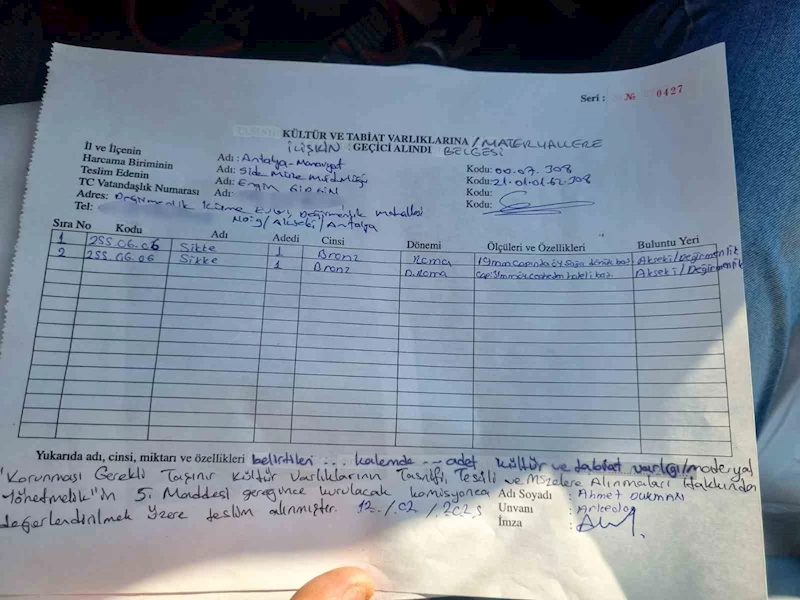 Seri : № 0427
KÜLTÜR VE TABİAT VARLIKLARINA / MATERYALLERE
İLİŞKİN GEÇİCİ ALINDI BELGESİ
İl ve İlçenin Adı : Antalya-Manavgat
Harcama Biriminin Adı : Side Müze Müdürlüğü Kodu: 00.07.308
Teslim Edenin Adı : Kodu: 21.01.01.62.308
TC Vatandaşlık Numarası Adı: Kodu:
Adres: Değirmenlik Mahallesi Kodu:
Tel: No:9/Akseki/Antalya
Sıra No Kodu Adı Adedi Cinsi Dönemi Ölçüleri ve Özellikleri Buluntu Yeri
1 255.06.06 Sikke 1 Bronz Roma Akseki/Değirmenlik
2 255.06.06 Sikke 1 Bronz D.Roma Akseki/Değirmenlik
Yukarıda adı, cinsi, miktarı ve özellikleri belirtilen ... kalemde ... adet kültür ve tabiat varlığı/materyal
"Korunması Gerekli Taşınır Kültür Varlıklarının Tasnifi, Tescili ve Müzelere Alınmaları Hakkında
Yönetmelik"in 5. Maddesi gereğince kurulacak komisyonca
değerlendirilmek üzere teslim alınmıştır. 12/02/2025
Adı Soyadı : Ahmet
Unvanı : Arkeolog
İmza :